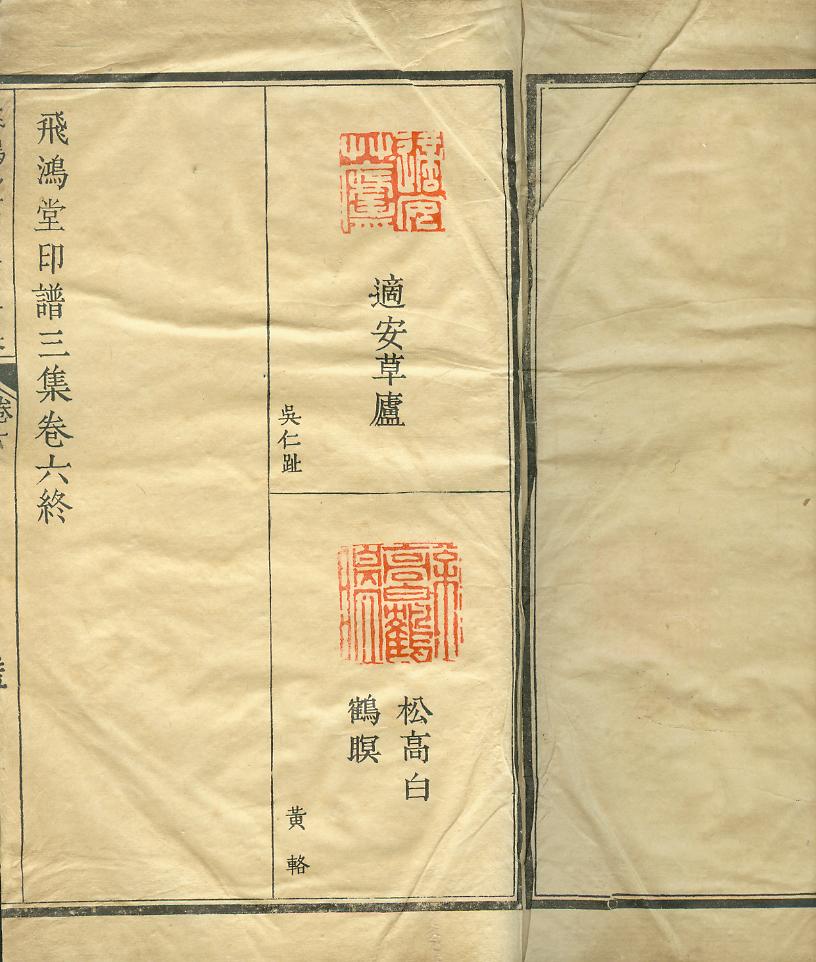 適安草廬
吳仁趾
松高白
鶴瞑
黃輅
飛鴻堂印譜三集卷六終